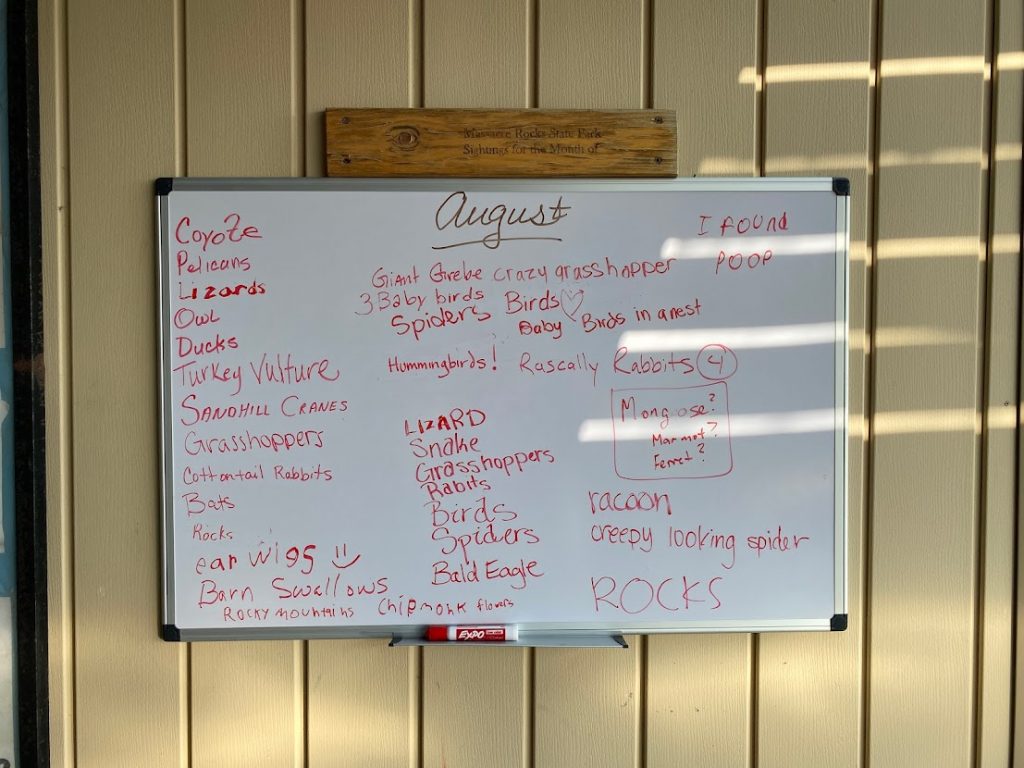 Massacre Rocks State Park
Sightings for the Month of
August
Coyote
Pelicans
Lizards
Owl
Ducks
Turkey Vulture
SANDHILL CRANES
Grasshoppers
Cottontail Rabbits
Bats
Rocks
ear wigs
Barn Swallows
Rocky mountains Chipmonk flowers
Giant Grebe crazy grasshopper
3 Baby birds Birds
Spiders Baby Birds in a nest
Hummingbirds! Rascally Rabbits 4
LIZARD
Snake
Grasshoppers
Rabits
Birds
Spiders
Bald Eagle
I found
POOP
Mongoose?
Marmot?
Ferret?
racoon
creepy looking spider
ROCKS
EXPO